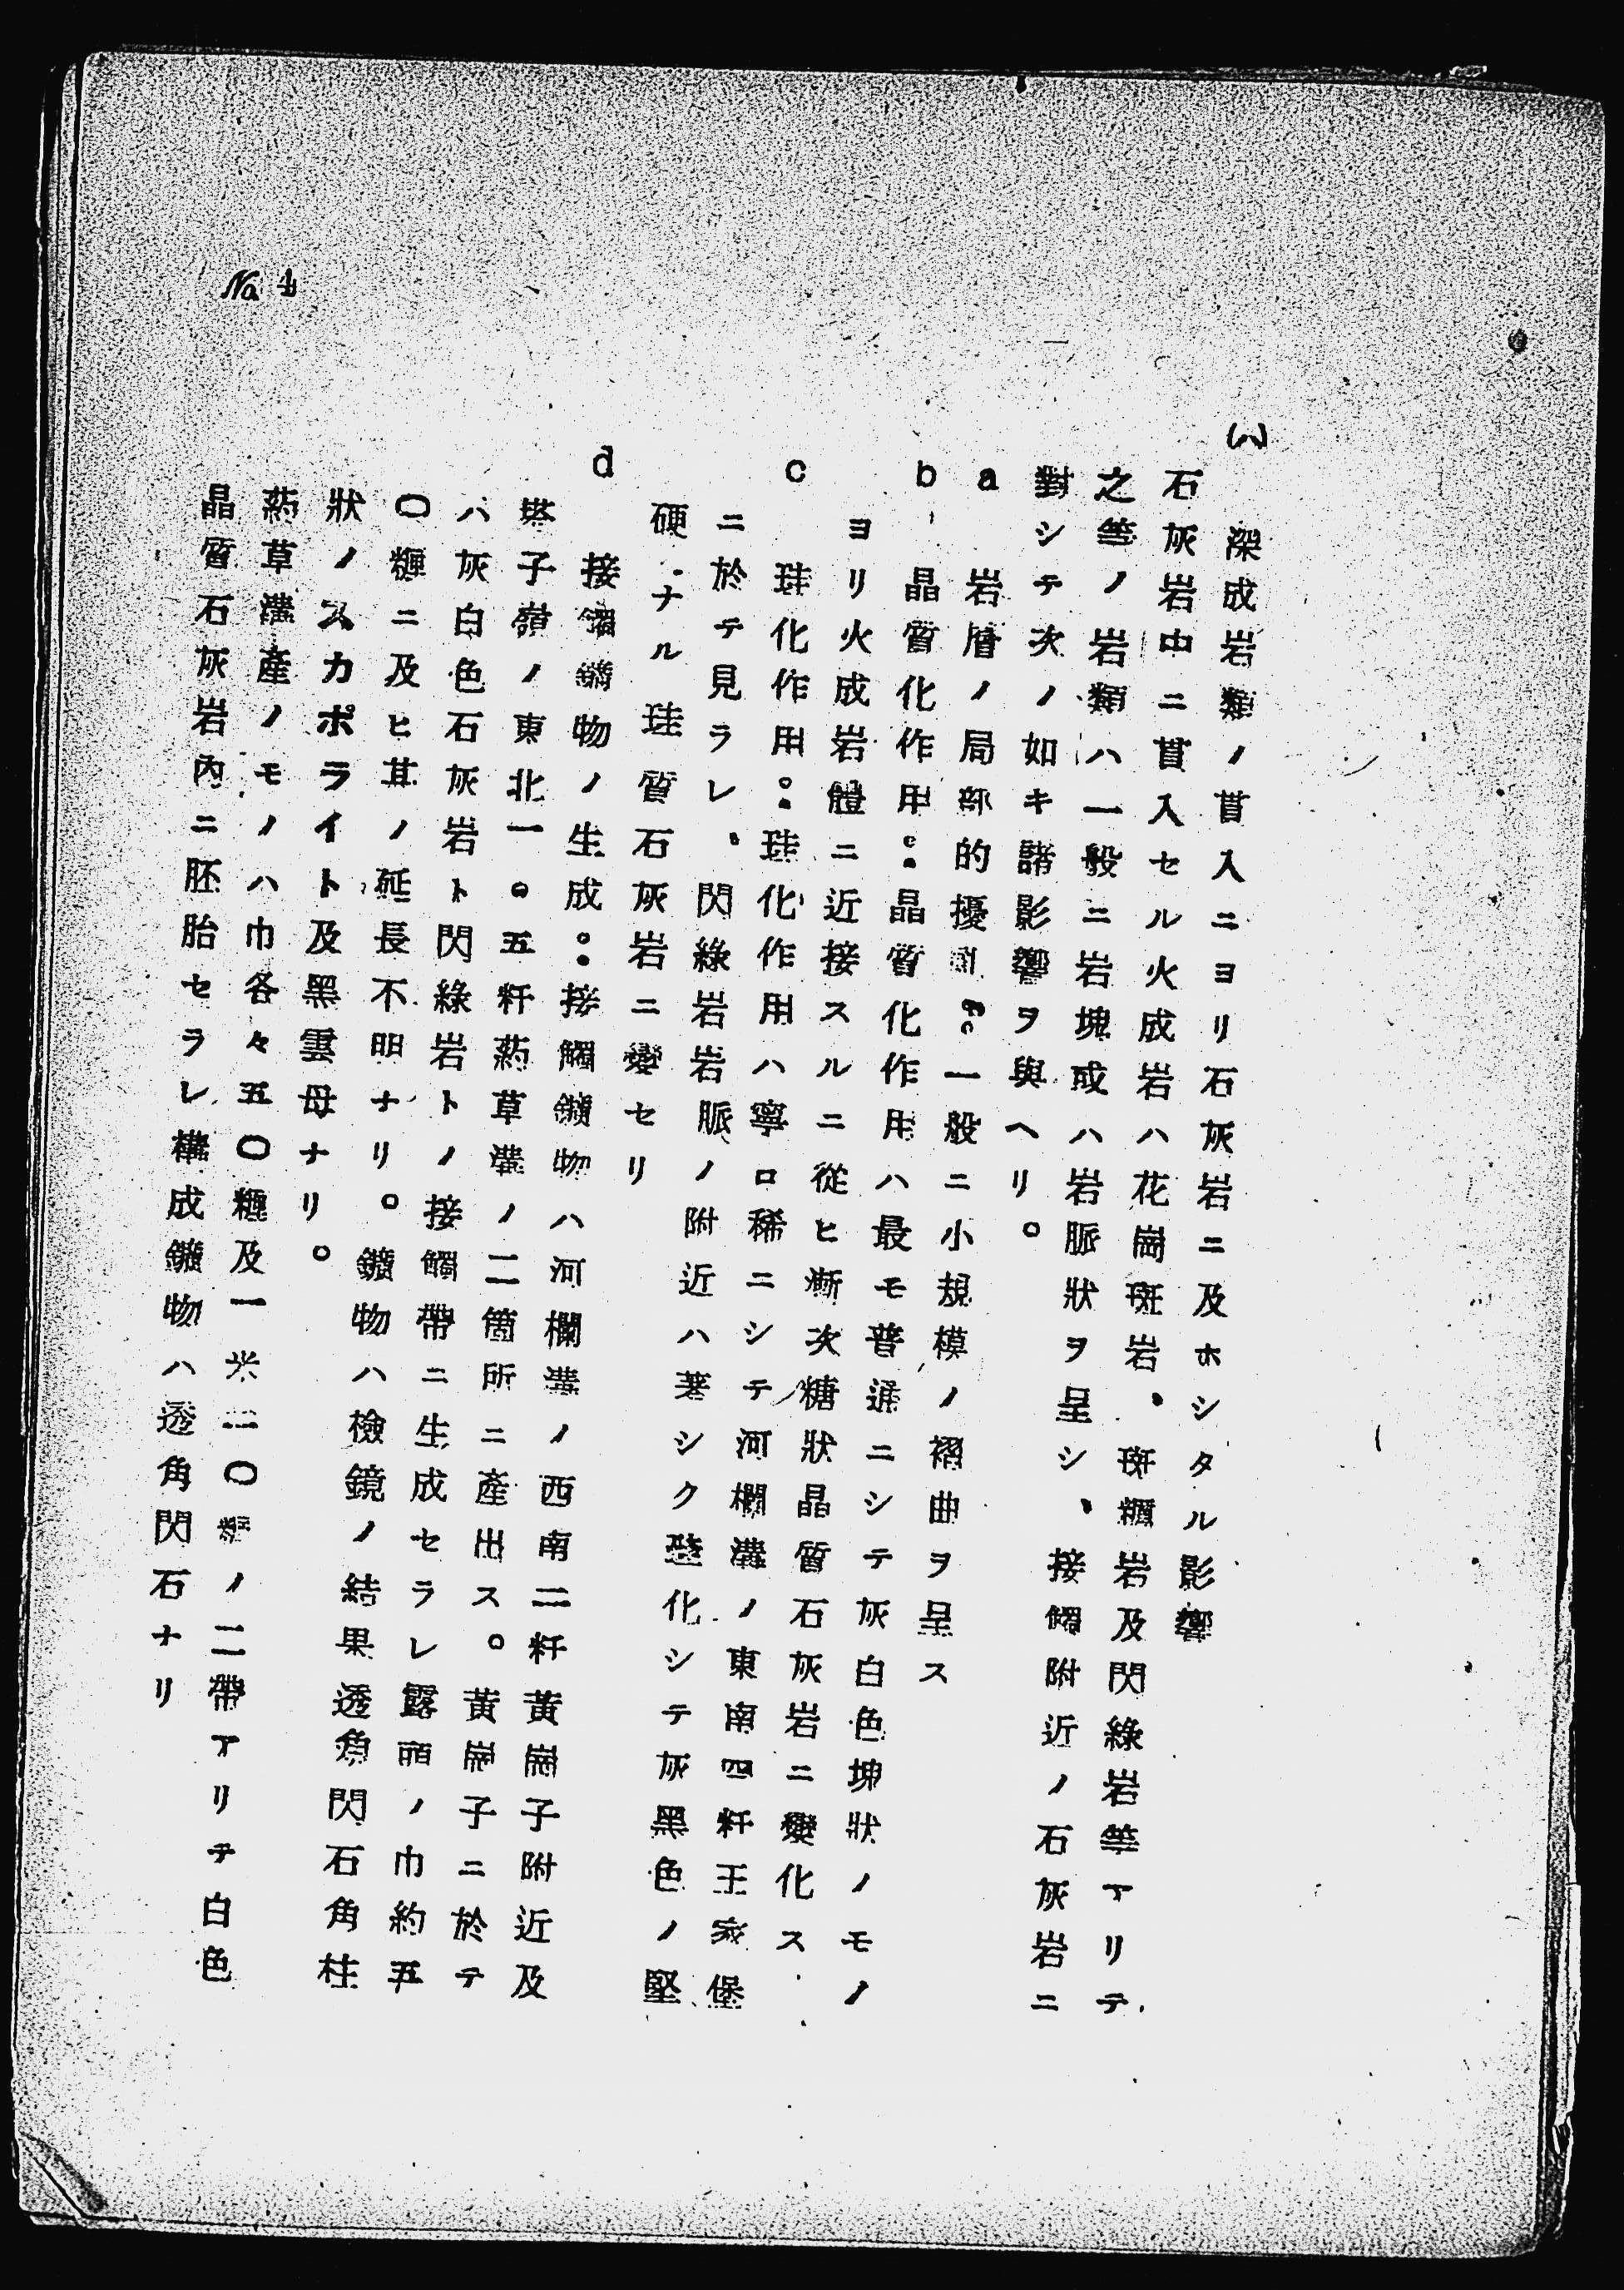 No. 4
(ハ) 深成岩類ノ貫入ニヨリ石灰岩ニ及ホシタル影響
石灰岩中ニ貫入セル火成岩ハ花崗斑岩、斑糲岩及閃綠岩等アリテ
之等ノ岩類ハ一般ニ岩塊或ハ岩脈狀ヲ呈シ、接觸附近ノ石灰岩ニ
對シテ次ノ如キ諸影響ヲ與ヘリ。
a 岩層ノ局部的擾亂 一般ニ小規模ノ褶曲ヲ呈ス
b 晶質化作用。晶質化作用ハ最モ普通ニシテ灰白色塊狀ノモノ
ヨリ火成岩體ニ近接スルニ從ヒ漸次糖狀晶質石灰岩ニ變化ス
c 珪化作用。珪化作用ハ寧ロ稀ニシテ河欄溝ノ東南四粁王家堡
ニ於テ見ラレ、閃綠岩岩脈ノ附近ハ著シク硅化シテ灰黑色ノ堅
硬ナル珪質石灰岩ニ變セリ
d 接觸鑛物ノ生成。接觸鑛物ハ河欄溝ノ西南二粁黃崗子附近及
子嶺ノ東北一。五粁葯草溝ノ二箇所ニ產出ス。黃崗子ニ於テ
ハ灰白色石灰岩ト閃綠岩トノ接觸帶ニ生成セラレ露頭ノ巾約五
〇糎ニ及ヒ其ノ延長不明ナリ。鑛物ハ檢鏡ノ結果透角閃石角柱
狀ノスカポライト及黑雲母ナリ。
葯草溝產ノモノハ巾各々五〇糎及一米二〇糎ノ二帶アリテ白色
晶質石灰岩內ニ胚胎セラレ構成鑛物ハ透角閃石ナリ